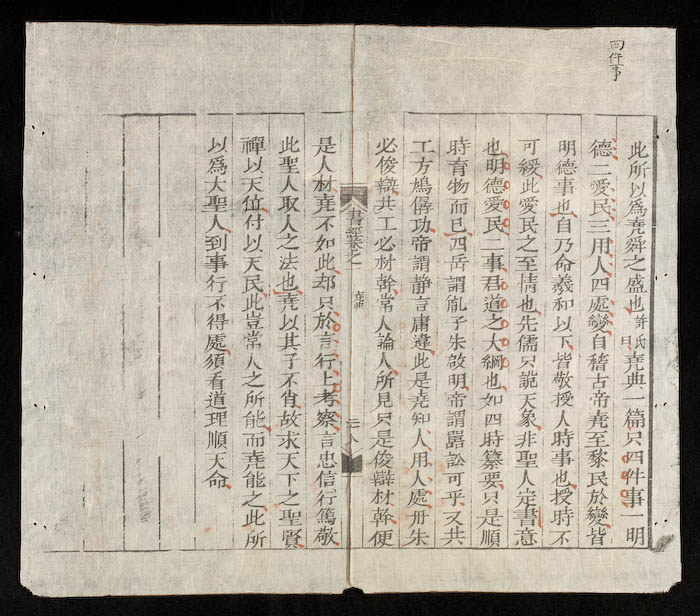 四件事
此所以爲堯舜之盛也許氏曰堯典一篇只四件事一明
德二愛民三用人四處變自稽古帝堯至黎民於變皆
明德事也自乃命羲和以下皆敬授人時事也授時不
可緩此愛民之至情也先儒只說天象非聖人定書意
也明德愛民二事君道之大綱也如四時纂要只是順
時育物而已四岳謂胤子朱啟明帝謂嚚訟可乎又共
工方鳩僝功帝謂静言庸違此是堯知人用人處丹朱
必俊辯共工必材幹常人論人所見只是俊辯材幹便
書經卷之一 堯典
是人材堯不如此却只於言行上考察言忠信行篤敬
此聖人取人之法也堯以其子不肖故求天下之聖賢
禪以天位付以天民此豈常人之所能而堯能之此所
以爲大聖人到事行不得處須看道理順天命